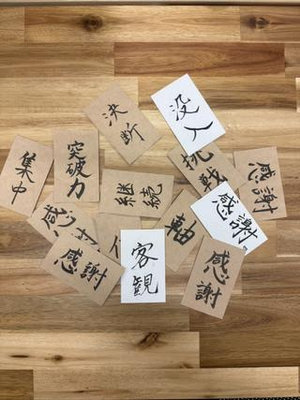 決断
没入
集中
突破力
継続
挑戦
感謝
感謝
軸
感謝
客観
感謝